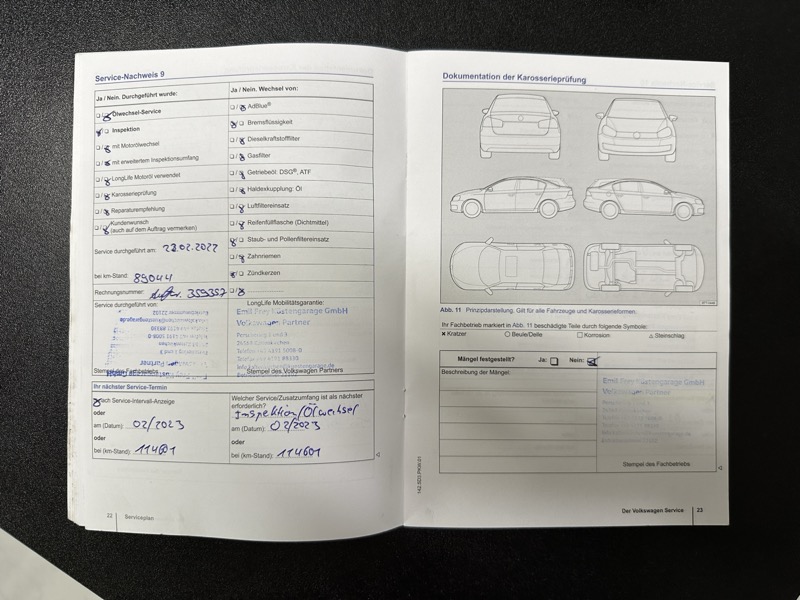 Service-Nachweis 9
Ja / Nein. Durchgeführt wurde:
Ölwechsel-Service
Inspektion
mit Motorölwechsel
mit erweitertem Inspektionsumfang
LongLife Motoröl verwendet
Karosserieprüfung
Reparaturempfehlung
Kundenwunsch
(auch auf dem Auftrag vermerken)
Service durchgeführt am: 23.02.2022
bei km-Stand: 89044
Rechnungsnummer: 359357
Service durchgeführt von:
Stempel des Fachbetriebs
Ja / Nein. Wechsel von:
AdBlue®
Bremsflüssigkeit
Dieselkraftstofffilter
Gasfilter
Getriebeöl: DSG®, ATF
Haldexkupplung: Öl
Luftfiltereinsatz
Reifenfüllflasche (Dichtmittel)
Staub- und Pollenfiltereinsatz
Zahnriemen
Zündkerzen
LongLife Mobilitätsgarantie:
Emil Frey Küstengarage GmbH
Volkswagen Partner
Stempel des Volkswagen Partners
Ihr nächster Service-Termin
nach Service-Intervall-Anzeige
oder
am (Datum): 02/2023
oder
bei (km-Stand): 114601
Welcher Service/Zusatzumfang ist als nächster
erforderlich?
Inspektion/Ölwechsel
am (Datum): 02/2023
oder
bei (km-Stand): 114601
22 Serviceplan
Dokumentation der Karosserieprüfung
Abb. 11 Prinzipdarstellung. Gilt für alle Fahrzeuge und Karosserieformen.
Ihr Fachbetrieb markiert in Abb. 11 beschädigte Teile durch folgende Symbole:
× Kratzer ○ Beule/Delle □ Korrosion △ Steinschlag
Mängel festgestellt? Ja: Nein:
Beschreibung der Mängel:
Emil Frey Küstengarage GmbH
Volkswagen Partner
Stempel des Fachbetriebs
Der Volkswagen Service 23